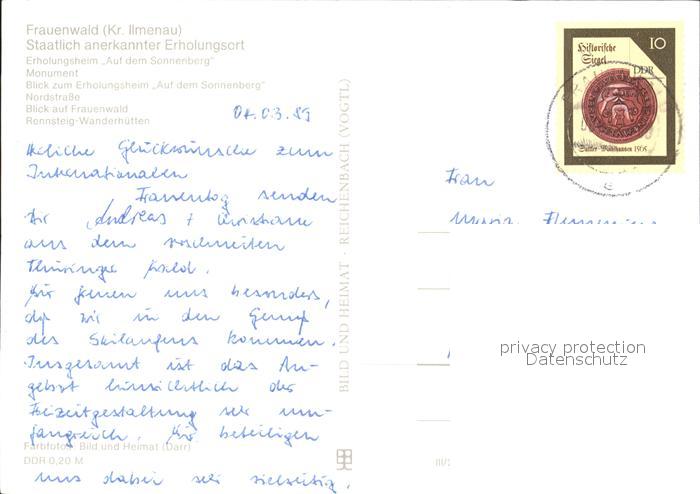 Frauenwald (Kr. Ilmenau)
Staatlich anerkannter Erholungsort
Erholungsheim „Auf dem Sonnenberg"
Monument
Blick zum Erholungsheim „Auf dem Sonnenberg"
Nordstraße
Blick auf Frauenwald
Rennsteig-Wanderhütten
04.03.89
Herzliche Glückwünsche zum
Internationalen
Frauentag senden
Ihr Andreas + Christiane
aus dem verschneiten
Thüringer Wald.
Wir freuen uns besonders,
daß wir in den Genuß
des Skilaufens kommen.
Insgesamt ist das An-
gebot hinsichtlich der
Freizeitgestaltung sehr um-
fangreich. Wir beteiligen
uns dabei sehr vielseitig.
Farbfotos: Bild und Heimat (Darr)
DDR 0,20 M
BILD UND HEIMAT · REICHENBACH (VOGTL)
III/
Historische
Siegel
10
DDR
1565
Frau
privacy protection
Datenschutz